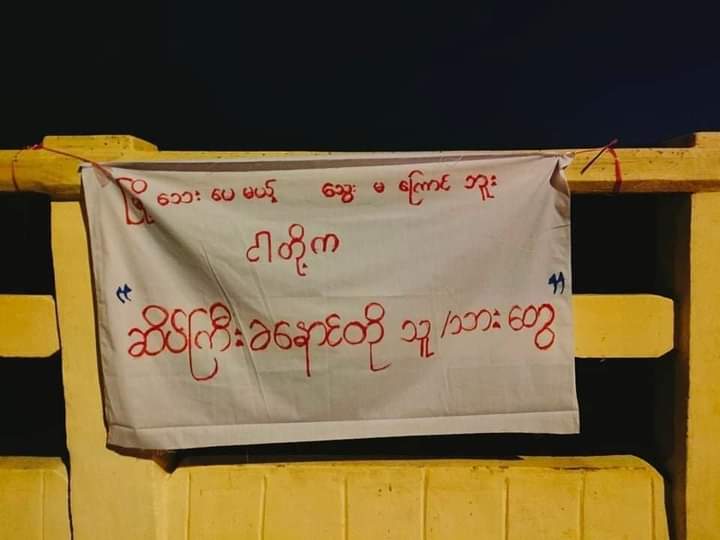 မြို့ သေး ပေ မယ့် သွေး မ ကြောင် ဘူး
ငါတို့က
"ဆိပ်ကြီးခနောင်တို သူ/သားတွေ"